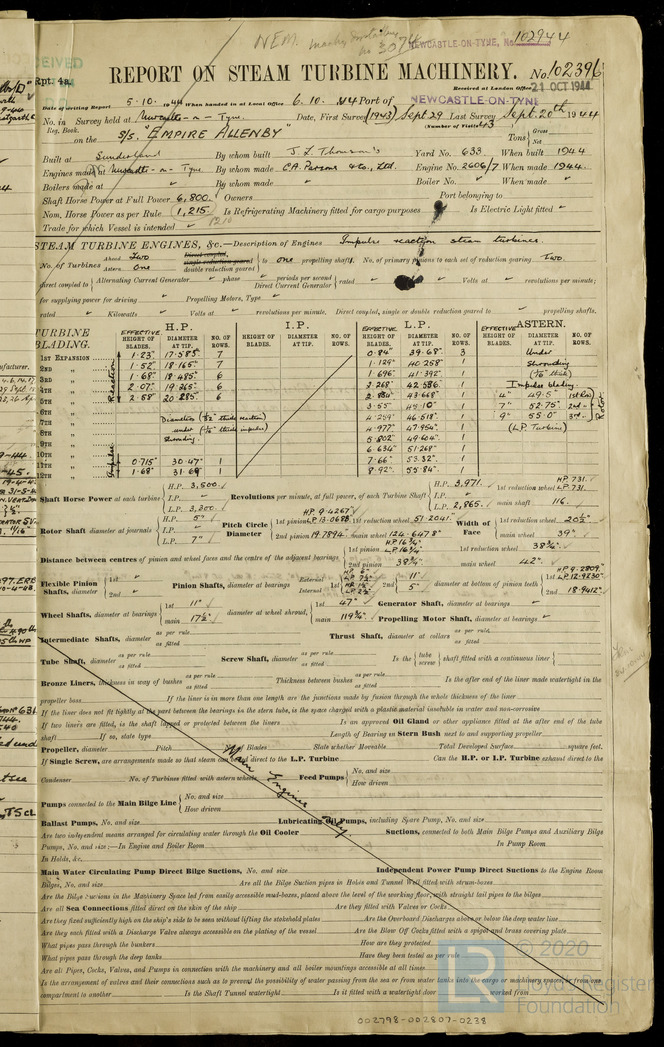 NEM.
102944
NEWCASTLE-ON-TYNE, No.
Rpt. 4a.
REPORT ON STEAM TURBINE MACHINERY. No. 102396
Received at London Office 21 OCT 1944
Date of writing Report 5.10.1944 When handed in at Local Office 6.10.44 Port of NEWCASTLE-ON-TYNE
No. in Survey held at Newcastle-n-Tyne. Date, First Survey (1943) Sept 29 Last Survey Sept. 20th 1944
Reg. Book. (Number of Visits 43
on the S/S. "EMPIRE ALLENBY" Tons { Gross Net
Built at Sunderland By whom built J. L. Thomson's Yard No. 633. When built 1944
Engines made at Newcastle-n-Tyne. By whom made C.A. Parsons & Co., Ltd. Engine No. 2606/7 When made 1944.
Boilers made at " By whom made " Boiler No. " When made "
Shaft Horse Power at Full Power 6,800. Owners Port belonging to
Nom. Horse Power as per Rule 1,215 Is Refrigerating Machinery fitted for cargo purposes Is Electric Light fitted "
Trade for which Vessel is intended "
STEAM TURBINE ENGINES, &c.—Description of Engines Impulse reaction steam turbines.
No. of Turbines Ahead Two Astern One Direct coupled, single reduction geared double reduction geared } to one propelling shaft. No. of primary pinions to each set of reduction gearing Two.
direct coupled to { Alternating Current Generator " phase " periods per second Direct Current Generator } rated " Kilowatts " Volts at " revolutions per minute;
for supplying power for driving " Propelling Motors, Type "
rated " Kilowatts " Volts at " revolutions per minute. Direct coupled, single or double reduction geared to " propelling shafts.
TURBINE BLADING. H.P. I.P. L.P. ASTERN.
EFFECTIVE HEIGHT OF BLADES. DIAMETER AT TIP. NO. OF ROWS. HEIGHT OF BLADES. DIAMETER AT TIP. NO. OF ROWS. EFFECTIVE HEIGHT OF BLADES. DIAMETER AT TIP. NO. OF ROWS. EFFECTIVE HEIGHT OF BLADES. DIAMETER AT TIP. NO. OF ROWS.
1ST EXPANSION 1.23" 17.585" 7 0.84" 39.68" 3 Under
2ND " 1.52" 18.165" 7 1.129" 40.258" 1 Shrouding
3RD " 1.68" 18.485" 6 1.696" 41.392" 1 (1/16" thick)
4TH " 2.07" 19.265" 6 2.268" 42.536" 1 Impulse blading.
5TH " 2.58" 20.285" 6 2.834" 43.668" 1 4" 49.5" 1st Row
6TH " 3.55" 45.10" 1 7" 52.75" 2nd "
7TH " Diameters (1/32" thick reaction) 4.259" 46.518" 1 9" 55.0" 3rd "
8TH " under (1/16" thick impulse) 4.977" 47.954" 1 (L.P. Turbine)
9TH " Shrouding. 5.802" 49.604" 1
10TH " 6.634" 51.268" 1
11TH " 0.715" 30.47" 1 7.66" 53.32" 1
12TH " 1.68" 31.69" 1 8.92" 55.84" 1
Shaft Horse Power at each turbine { H.P. 3,500. I.P. " L.P. 3,300. Revolutions per minute, at full power, of each Turbine Shaft { H.P. 3,971. I.P. " L.P. 2,865. 1st reduction wheel HP. 731. LP. 731. main shaft 116.
Rotor Shaft diameter at journals { H.P. 5" I.P. " L.P. 7" Pitch Circle Diameter { 1st pinion HP. 9.4267" LP. 13.0688 1st reduction wheel 51.2041 2nd pinion 19.7894" main wheel 124.6478" Width of Face { 1st reduction wheel 20 1/2" main wheel 39"
Distance between centres of pinion and wheel faces and the centre of the adjacent bearings { 1st pinion HP 16 3/4" LP 16 1/4" 2nd pinion 38 3/4" 1st reduction wheel 38 3/4" main wheel 42"
Flexible Pinion Shafts, diameter { 1st " 2nd " Pinion Shafts, diameter at bearings External Internal 1st 2nd 11" 5" diameter at bottom of pinion teeth { 1st HP 9.2809" LP 12.9230" 2nd 18.9412"
Wheel Shafts, diameter at bearings { 1st 11" main 17 1/2" diameter at wheel shroud, { 1st 47" main 119 3/4" Generator Shaft, diameter at bearings " Propelling Motor Shaft, diameter at bearings "
Intermediate Shafts, diameter as per rule as fitted Thrust Shaft, diameter at collars as per rule as fitted
Tube Shaft, diameter as per rule as fitted Screw Shaft, diameter as per rule as fitted Is the { tube screw } shaft fitted with a continuous liner {
Bronze Liners, thickness in way of bushes as per rule as fitted Thickness between bushes as per rule as fitted Is the after end of the liner made watertight in the
propeller boss If the liner is in more than one length are the junctions made by fusion through the whole thickness of the liner
If the liner does not fit tightly at the part between the bearings in the stern tube, is the space charged with a plastic material insoluble in water and non-corrosive
If two liners are fitted, is the shaft lapped or protected between the liners Is an approved Oil Gland or other appliance fitted at the after end of the tube
shaft If so, state type Length of Bearing in Stern Bush next to and supporting propeller
Propeller, diameter Pitch No. of Blades State whether Moveable Total Developed Surface square feet.
If Single Screw, are arrangements made so that steam can be led direct to the L.P. Turbine Can the H.P. or I.P. Turbine exhaust direct to the
Condenser No. of Turbines fitted with astern wheels Feed Pumps { No. and size How driven
Main Engines Only.
Pumps connected to the Main Bilge Line { No. and size How driven
Ballast Pumps, No. and size Lubricating Oil Pumps, including Spare Pump, No. and size
Are two independent means arranged for circulating water through the Oil Cooler Suctions, connected to both Main Bilge Pumps and Auxiliary Bilge
Pumps, No. and size:—In Engine and Boiler Room In Pump Room
In Holds, &c.
Main Water Circulating Pump Direct Bilge Suctions, No. and size Independent Power Pump Direct Suctions to the Engine Room
Bilges, No. and size Are all the Bilge Suction pipes in Holds and Tunnel Well fitted with strum-boxes
Are the Bilge Suctions in the Machinery Space led from easily accessible mud-boxes, placed above the level of the working floor, with straight tail pipes to the bilges
Are all Sea Connections fitted direct on the skin of the ship Are they fitted with Valves or Cocks
Are they fixed sufficiently high on the ship's side to be seen without lifting the stokehold plates Are the Overboard Discharges above or below the deep water line
Are they each fitted with a Discharge Valve always accessible on the plating of the vessel Are the Blow Off Cocks fitted with a spigot and brass covering plate
What pipes pass through the bunkers How are they protected
What pipes pass through the deep tanks Have they been tested as per rule
Are all Pipes, Cocks, Valves, and Pumps in connection with the machinery and all boiler mountings accessible at all times
Is the arrangement of valves and their connections such as to prevent the possibility of water passing from the sea or from water tanks into the cargo or machinery spaces, or from one
compartment to another Is the Shaft Tunnel watertight Is it fitted with a watertight door worked from
© 2020
LR Lloyd's Register
Foundation
002798-002807-0238